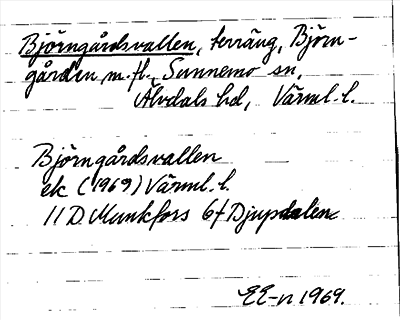 Björngårdsvallen, terräng, Björn-
gården m.fl., Sunnemo sn,
Älvdals hd, Värml. l.
Björngårdsvallen
ek (1969) Värml. l.
11 D. Munkfors 6f Djupdalen
EE-n 1969.